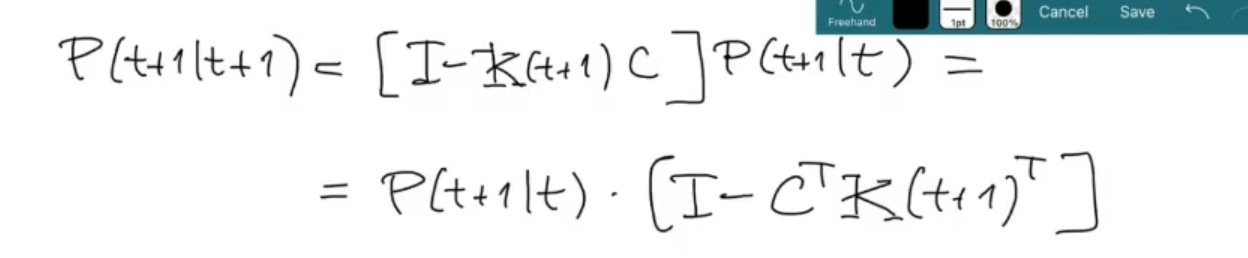 Freehand 1pt 100% Cancel Save
P(t+1|t+1) = [I-K(t+1)C]P(t+1|t) =
= P(t+1|t) · [I-CᵀK(t+1)ᵀ]